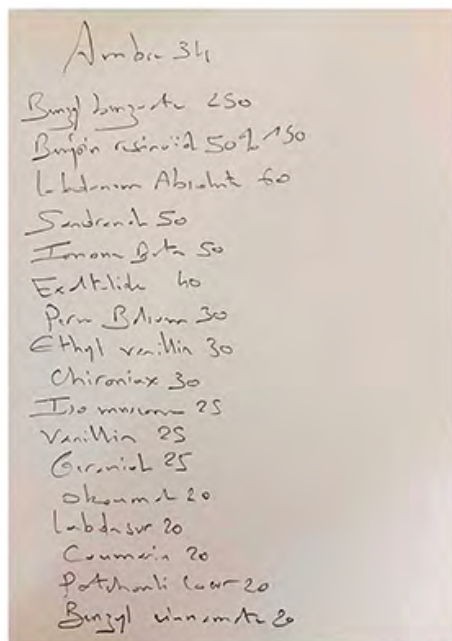 Ambre 34
Benzyl benzoate 250
Benjoin resinoid 50% 150
Labdanum Absolute 60
Sandranol 50
Ionone Beta 50
Exaltolide 40
Peru Balsam 30
Ethyl vanillin 30
Chironiax 30
Iso muscone 25
Vanillin 25
Geraniol 25
Okoumal 20
Labdasur 20
Coumarin 20
Patchouli coeur 20
Benzyl cinnamate 20